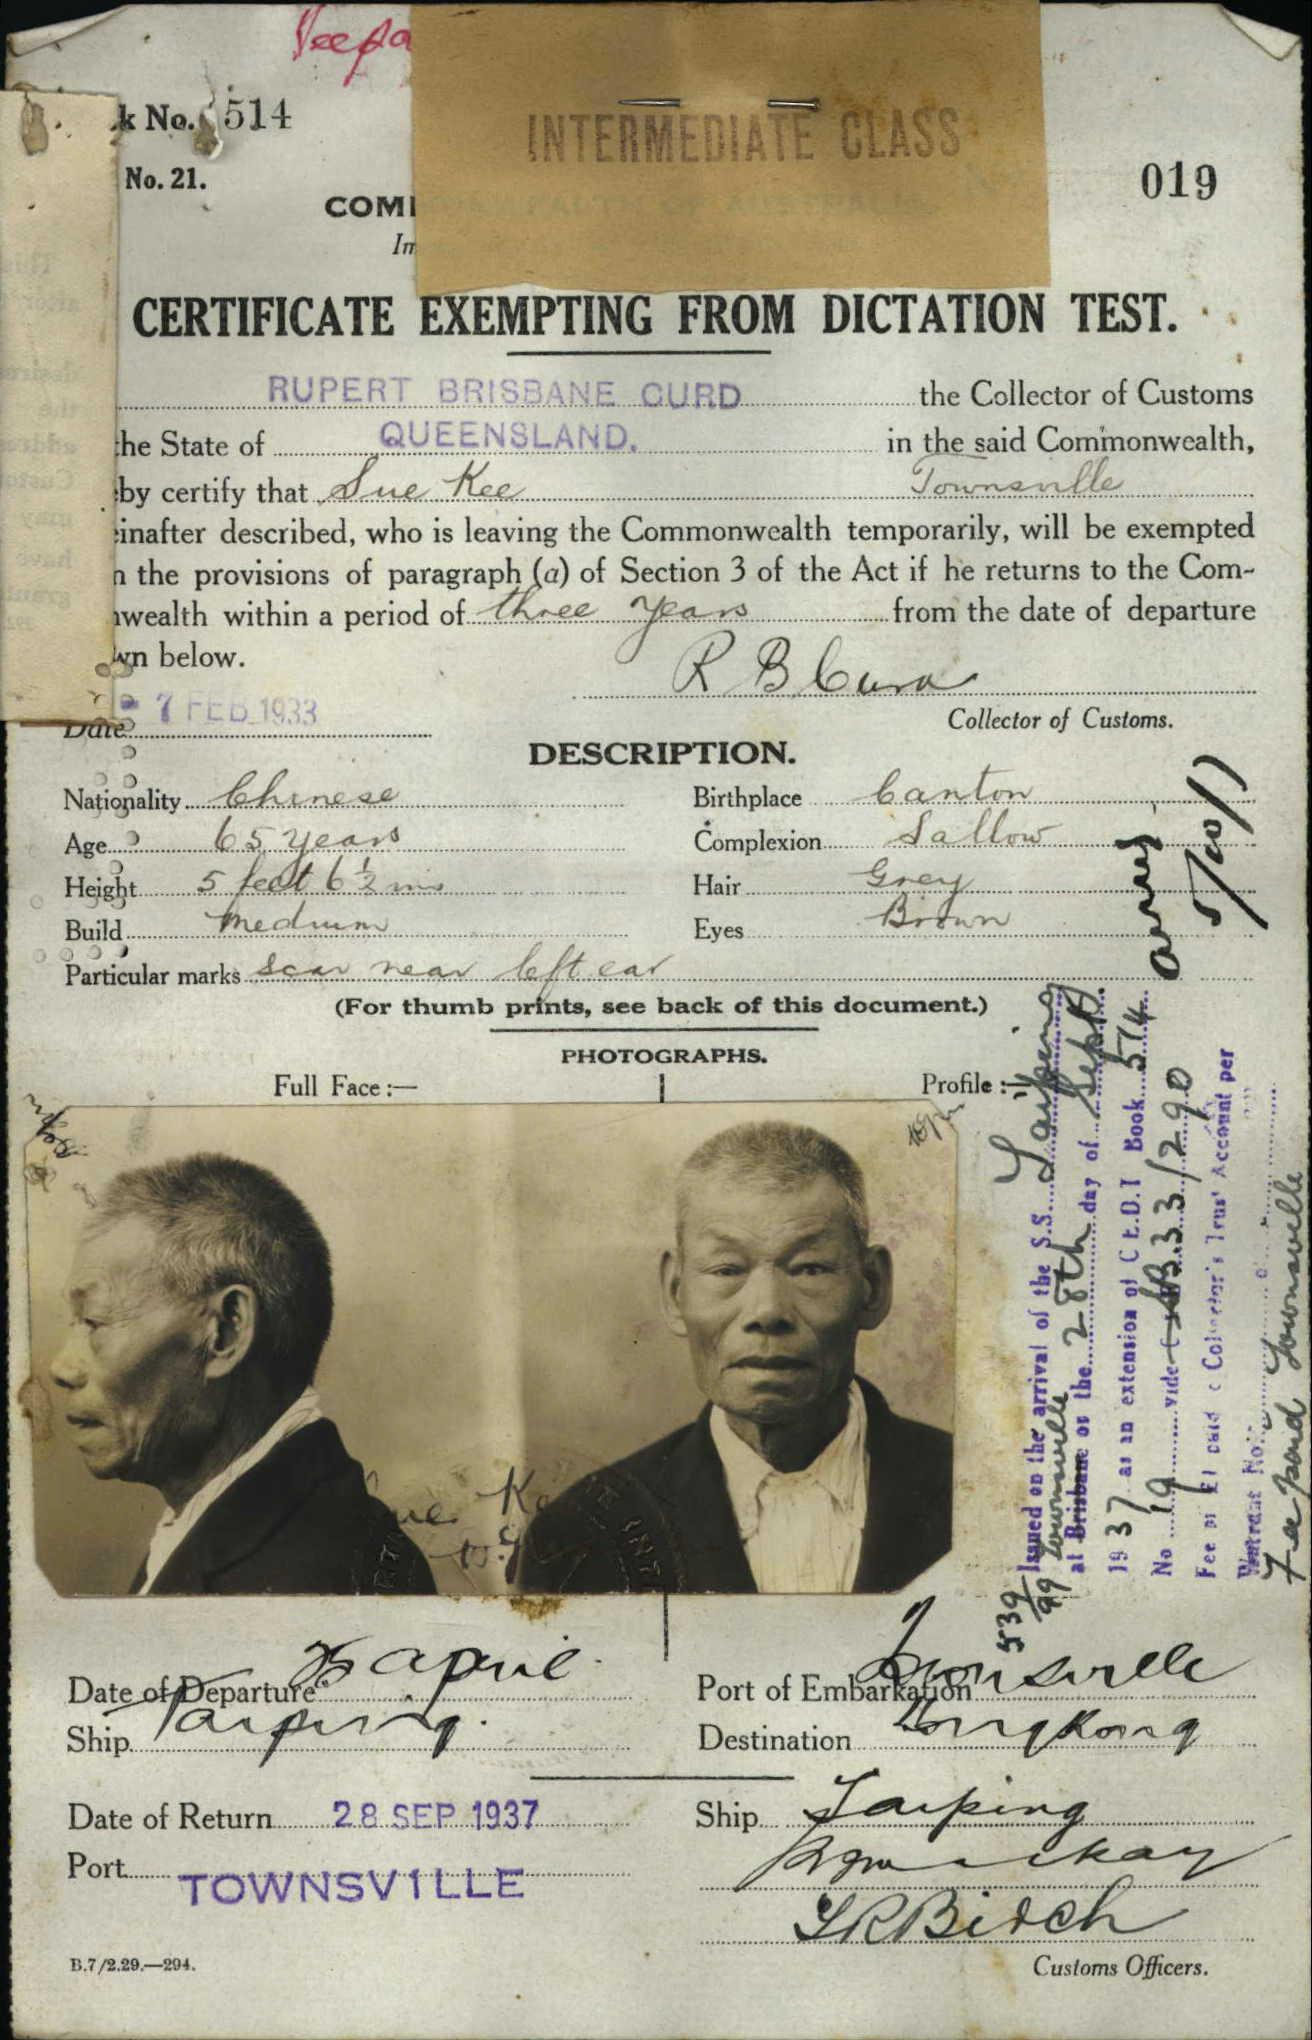 k No. 514
INTERMEDIATE CLASS
No. 21.
019
COM
Im
CERTIFICATE EXEMPTING FROM DICTATION TEST.
RUPERT BRISBANE CURD the Collector of Customs
the State of QUEENSLAND. in the said Commonwealth,
by certify that Sue Kee Townsville
einafter described, who is leaving the Commonwealth temporarily, will be exempted
n the provisions of paragraph (a) of Section 3 of the Act if he returns to the Com-
wealth within a period of three years from the date of departure
wn below.
R B Curd
Collector of Customs.
Date 7 FEB 1933
DESCRIPTION.
Nationality Chinese Birthplace Canton
Age 65 years Complexion Sallow
Height 5 feet 6 ½ ins Hair Grey
Build Medium Eyes Brown
Particular marks scar near left ear
(For thumb prints, see back of this document.)
PHOTOGRAPHS.
Full Face :— Profile :—
Issued on the arrival of the S.S. Taiping
Townsville
at Brisbane on the 28th day of Sept
1937 as an extension of C.E.D.T Book 514
No 19 vide 33/290
Fee of £1 paid Collector's Trust Account per
Warrant No.
Fee paid Townsville
539/99
Date of Departure 25 April Port of Embarkation Townsville
Ship Taiping Destination Hongkong
Date of Return 28 SEP 1937 Ship Taiping
Port TOWNSVILLE
Customs Officers.
B.7/2.29.—294.